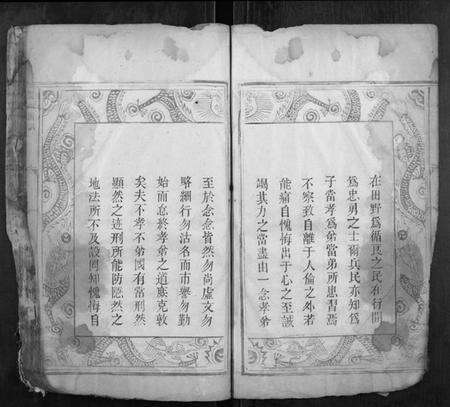 在田野爲循良之民在行間
爲忠勇之士爾兵民亦知爲
子當孝爲弟當弟所患習焉
不察致自離于人倫之外若
能痛自愧悔出于心之至誠
竭其力之當盡由一念孝弟
至於念念皆然勿尚虛文勿
略細行勿沽名而市譽勿勤
始而怠終孝弟之道庶克敦
矣夫不孝不弟國有常刑然
顯然之迹刑所能防隱然之
地法所不及設罔知愧悔自